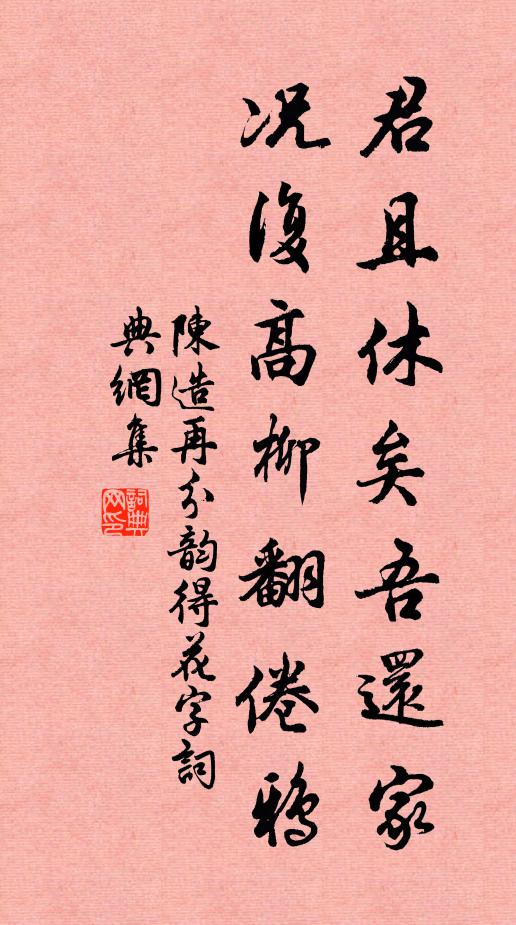 君且休矣吾還家
況復高柳翻倦鴉
陳造再分韵得花字詞
典網集
詞典網印